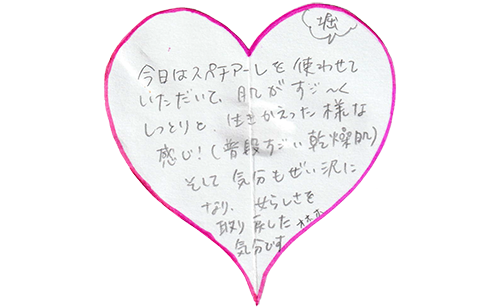 堀
今日はスペチアーレを使わせて
いただいて、肌がすご〜く
しっとりと、生きかえった様な
感じ!(普段すごい乾燥肌)
そして気分もぜい沢に
なり、女らしさを
取り戻した ホホホ
気分です